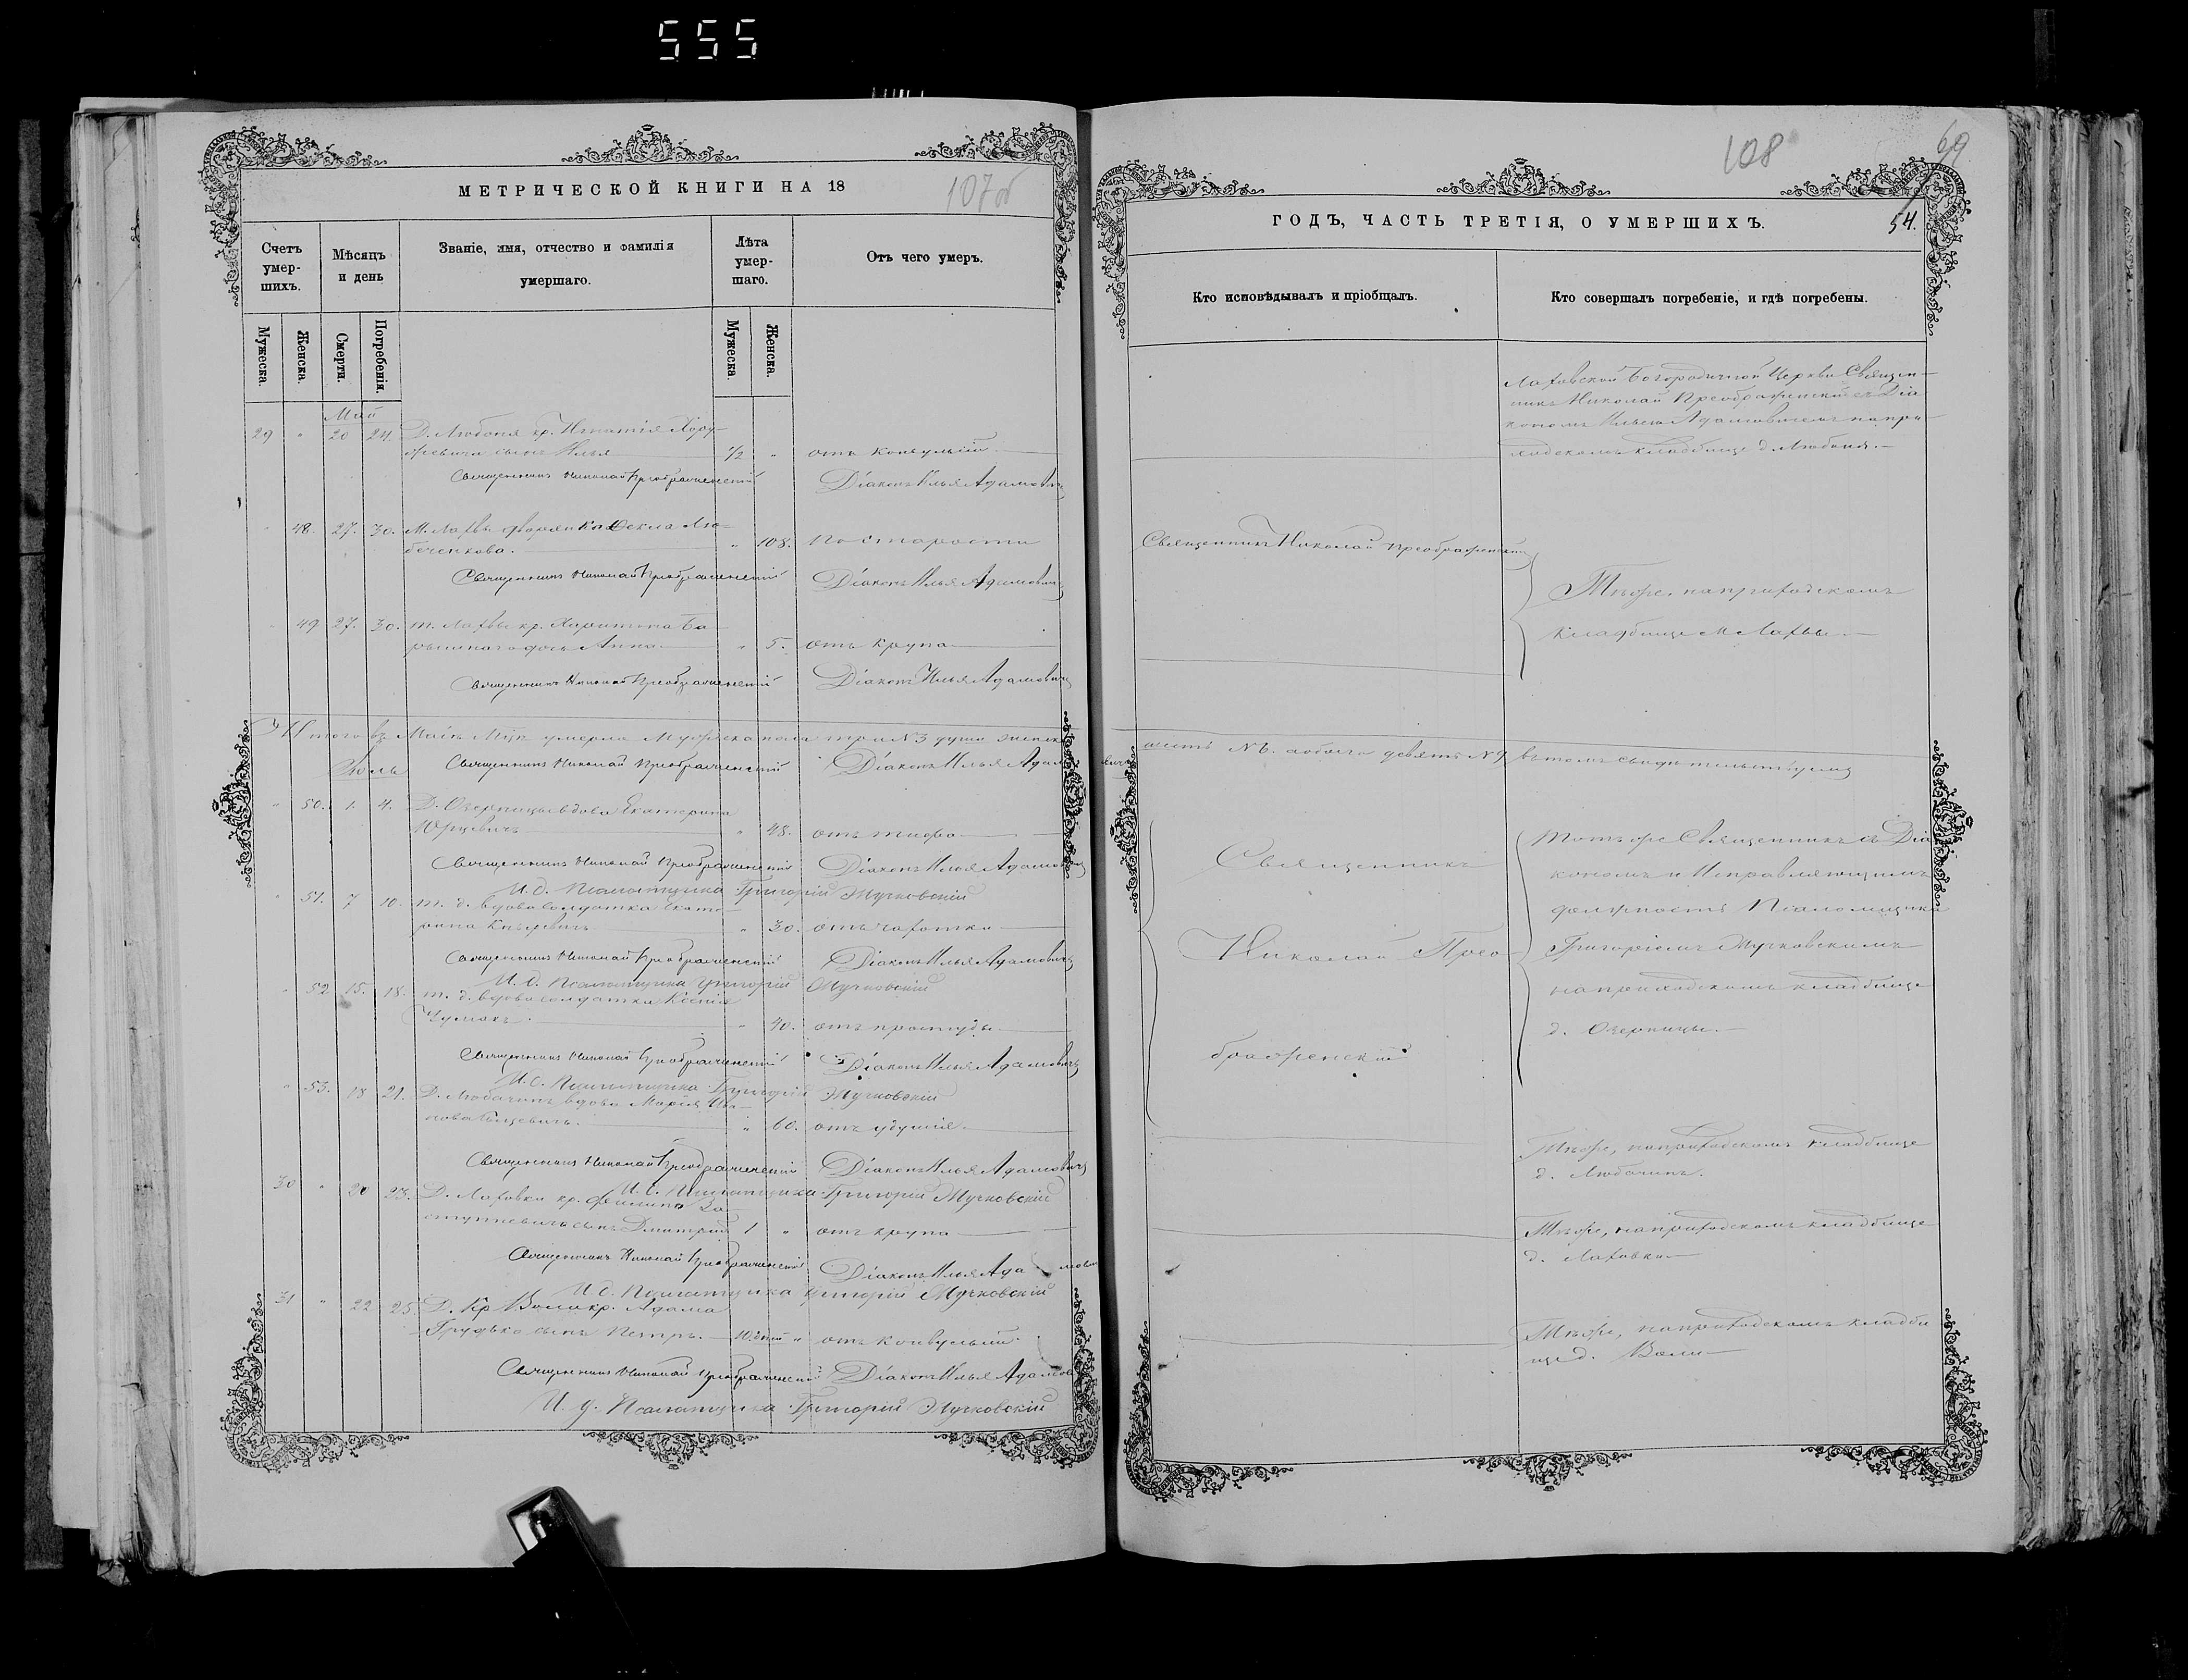 555
МЕТРИЧЕСКОЙ КНИГИ НА 18
107 об
Счетъ умер-
шихъ.
Мѣсяцъ
и день
Званіе, имя, отчество и фамилія
умершаго.
Лѣта
умер-
шаго.
Отъ чего умеръ.
Мужеска.
Женска.
Смерти.
Погребенія.
Мужеска.
Женска.
Май
29 " 20 24. Д. Любоня кр. Игнатія
сынъ Илья 1/2 " отъ конвульсій
Священникъ Николай Преображенскій Діаконъ Илья Адамовичъ
" 48. 27. 30. М. Лахвы дворянка Фекла Лю-
беченкова. " 108. по старости
Священникъ Николай Преображенскій Діаконъ Илья Адамовичъ
49 27. 30. т. Лахвы кр. Харитона Ба-
дочь Анна " 5. отъ крупа
Священникъ Николай Преображенскій Діаконъ Илья Адамовичъ
Итого въ Маѣ М-цѣ умерло Мужеска пола три № 3 души женска
Іюнь Священникъ Николай Преображенскій Діаконъ Илья Адамовичъ
" 50. 1. 4. Д. Озерницы вдова Екатерина
Юрцевичъ " 48. отъ тифа
Священникъ Николай Преображенскій Діаконъ Илья Адамовичъ
И. д. Псаломщика Григорій Жучковскій
" 51. 7 10. т. д. вдова солдатка Екате-
рина " 30. отъ чахотки
Священникъ Николай Преображенскій Діаконъ Илья Адамовичъ
И. д. Псаломщика Григорій Жучковскій
" 52 15. 18. т. д. вдова солдатка Ксенія
" 40. отъ простуды
Священникъ Николай Преображенскій Діаконъ Илья Адамовичъ
И. д. Псаломщика Григорій Жучковскій
" 53. 18 21. Д. Любачинъ вдова Марія
" 60. отъ удушія
Священникъ Николай Преображенскій Діаконъ Илья Адамовичъ
И. д. Псаломщика Григорій Жучковскій
30 " 20 23. Д. Лаховки кр. Филипа За-
сынъ Дмитрій 1 " отъ крупа
Священникъ Николай Преображенскій Діаконъ Илья Адамовичъ
И. д. Псаломщика Григорій Жучковскій
31 " 22 25 Д. Кр Воли кр. Адама
Грудько сынъ Петръ. 10 дней " отъ конвульсій
Священникъ Николай Преображенскій Діаконъ Илья Адамович
И. д. Псаломщика Григорій Жучковскій
108
69
54.
ГОДЪ, ЧАСТЬ ТРЕТІЯ, О УМЕРШИХЪ.
Кто исповѣдывалъ и пріобщалъ.
Кто совершалъ погребеніе, и гдѣ погребены.
Лаховской Богородичной Церкви Священ-
никъ Николай Преображенскій съ Діа
кономъ Ильею Адамовичемъ на при-
ходскомъ кладбище д. Любоня.
Священникъ Николай Преображенскій
Тѣже, на приходскомъ
кладбище М. Лахвы.
шесть № 6. а обоего девять № 9 въ томъ свидѣтельствуемъ
Священникъ
Николай Прео-
браженскій
Тотъ же Священникъ съ Діа
кономъ и Исправляющимъ
должность Псаломщика
Григоріемъ Жучковскимъ
на приходскомъ кладбище
д. Озерницы.
Тѣже, на приходскомъ кладбище
д. Любачинъ.
Тѣже, на приходскомъ кладбище
д. Лаховки.
Тѣже, на приходскомъ кладби
ще д. Воли